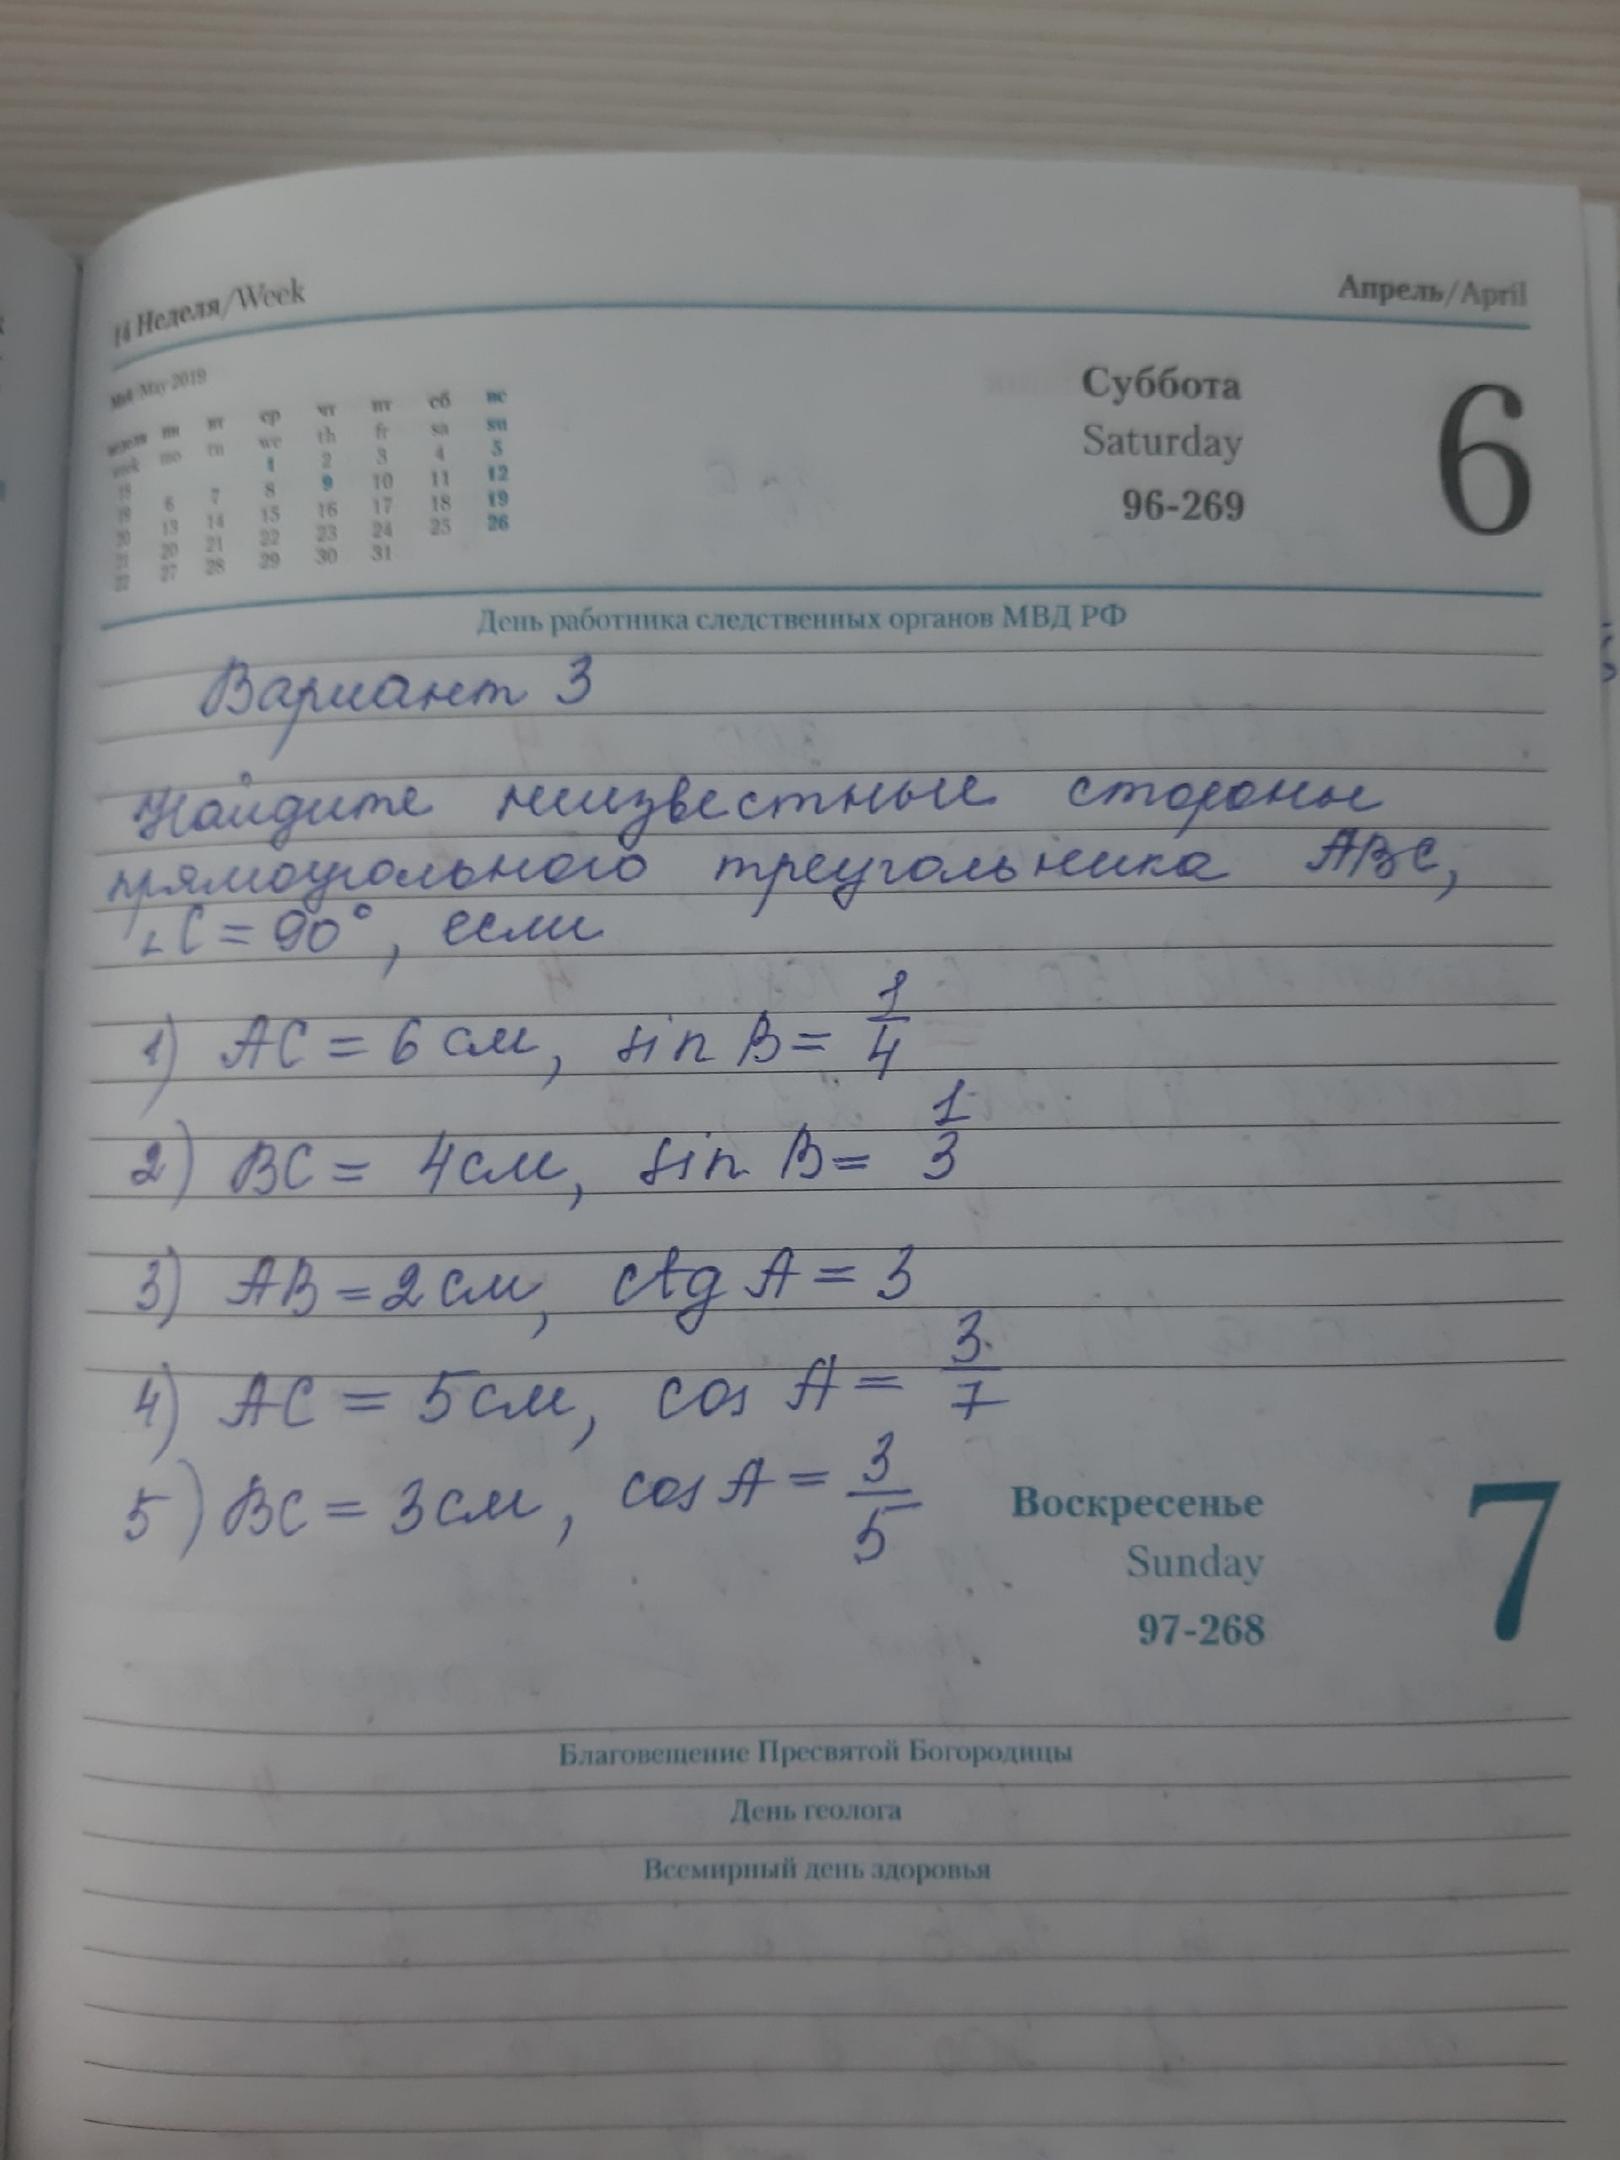 14 Неделя/Week
Апрель/April
Май/May 2019
неделя пн вт ср чт пт сб вс
week mo tu we th fr sa su
18 1 2 3 4 5
19 6 7 8 9 10 11 12
20 13 14 15 16 17 18 19
21 20 21 22 23 24 25 26
22 27 28 29 30 31
Суббота
Saturday
96-269
6
День работника следственных органов МВД РФ
Вариант 3
Найдите неизвестные стороны
прямоугольного треугольника ABC,
∠C = 90°, если
1) AC = 6 см, sin B = 1/4
2) BC = 4 см, sin B = 1/3
3) AB = 2 см, ctg A = 3
4) AC = 5 см, cos A = 3/7
5) BC = 3 см, cos A = 3/5
Воскресенье
Sunday
97-268
7
Благовещение Пресвятой Богородицы
День геолога
Всемирный день здоровья